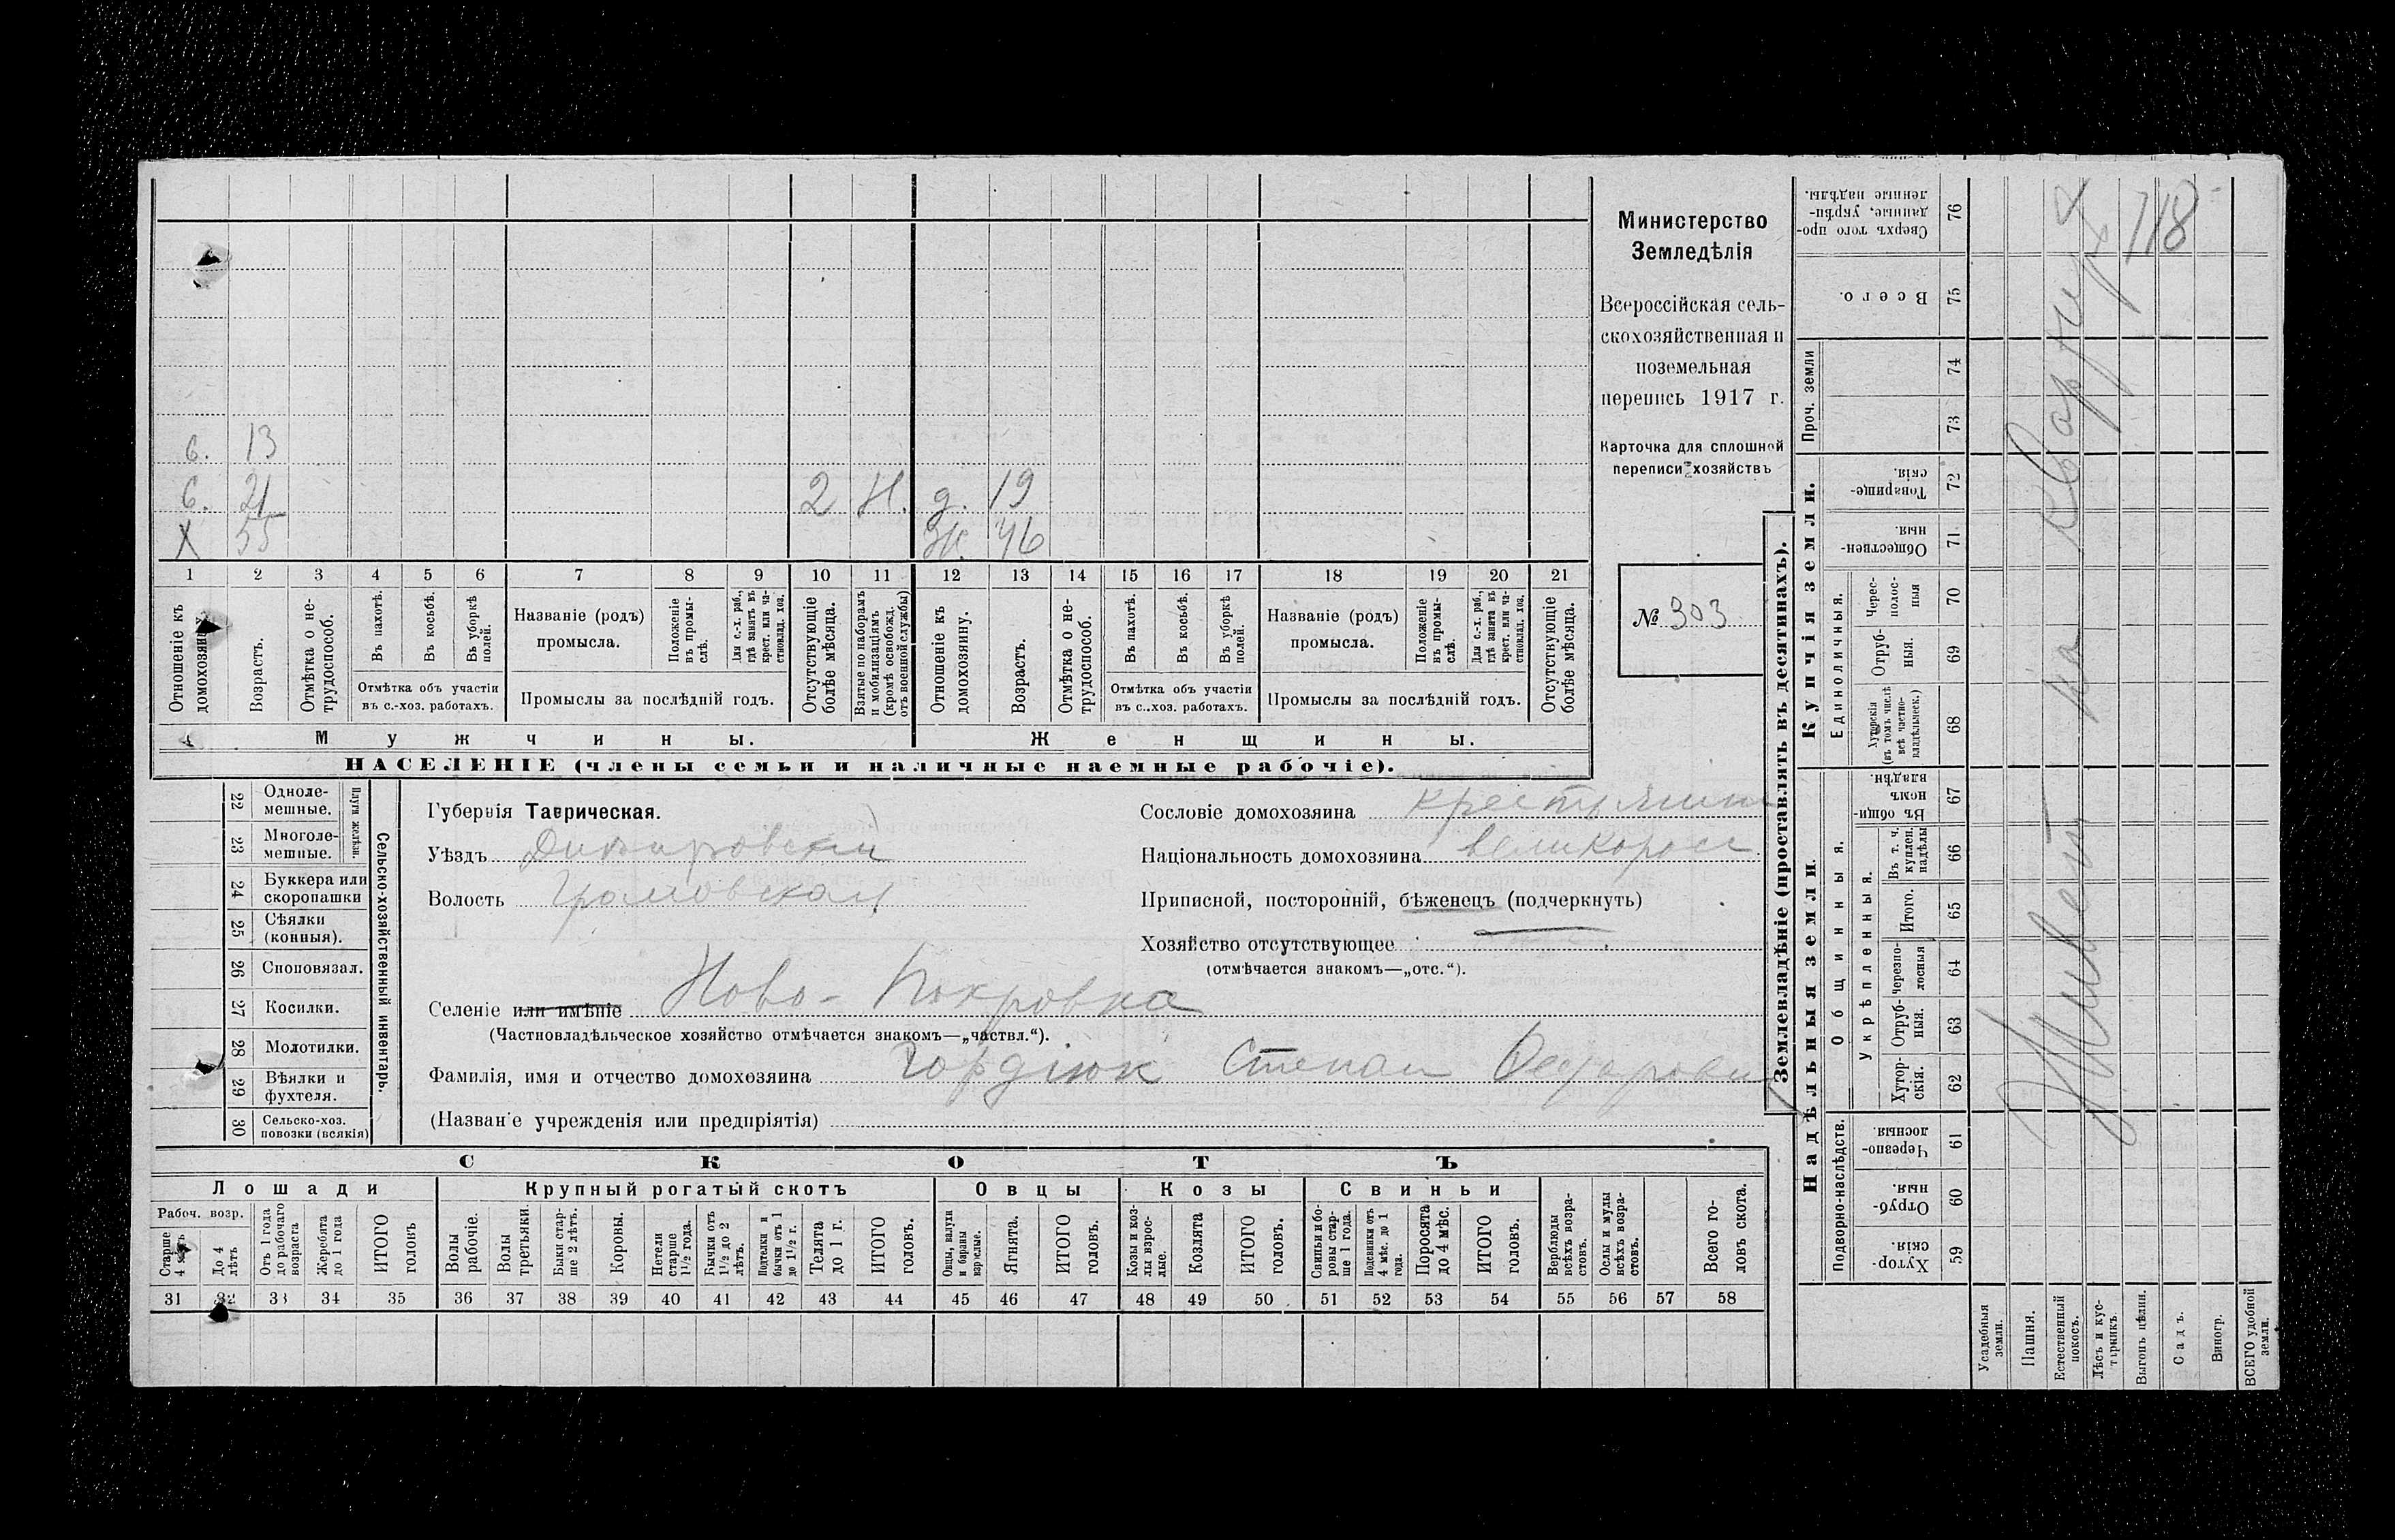 6. 13
6. 21 2 Н. д. 19
X 55 Ж. 46
1 2 3 4 5 6 7 8 9 10 11 12 13 14 15 16 17 18 19 20 21
Отношеніе къ домохозяину.
Возрастъ.
Отмѣтка о не-
трудоспособ.
Въ пахотѣ.
Въ косьбѣ.
Въ уборкѣ
полей.
Отмѣтка объ участіи
въ с.-хоз. работахъ.
Названіе (родъ)
промысла.
Положеніе
въ промы-
слѣ.
Для с.-х. раб.,
гдѣ занятъ въ
крест. или ча-
стновлад. хоз.
Промыслы за послѣдній годъ.
Отсутствующіе
болѣе мѣсяца.
Взятые по наборамъ
и мобилизаціямъ
(кромѣ освобожд.
отъ военной службы)
Отношеніе къ
домохозяину.
Возрастъ.
Отмѣтка о не-
трудоспособ.
Въ пахотѣ.
Въ косьбѣ.
Въ уборкѣ
полей.
Отмѣтка объ участіи
въ с.-хоз. работахъ.
Названіе (родъ)
промысла.
Положеніе
въ промы-
слѣ.
Для с.-х. раб.,
гдѣ занята въ
крест. или ча-
стновлад. хоз.
Промыслы за послѣдній годъ.
Отсутствующіе
болѣе мѣсяца.
Мужчины. Женщины.
НАСЕЛЕНІЕ (члены семьи и наличные наемные рабочіе).
Министерство
Земледѣлія
Всероссійская сель-
скохозяйственная и
поземельная
перепись 1917 г.
Карточка для сплошной
переписи хозяйствъ
№ 303
22 Одноле-
мешные.
23 Многоле-
мешные.
Плуги желѣзн.
24 Буккера или
скоропашки
25 Сѣялки
(конныя).
26 Споповязал.
27 Косилки.
28 Молотилки.
29 Вѣялки и
фухтеля.
30 Сельско-хоз.
повозки (всякія)
Сельско-хозяйственный инвентарь.
Губернія Таврическая.
Уѣздъ Днѣпровскій
Волость Громовская
Селеніе или имѣніе Ново-Покровка
(Частновладѣльческое хозяйство отмѣчается знакомъ—„частвл.“).
Фамилія, имя и отчество домохозяина Гордіюк Степан
(Названіе учрежденія или предпріятія)
Сословіе домохозяина крестьянин
Національность домохозяина великоросс
Приписной, посторонній, бѣженецъ (подчеркнуть)
Хозяйство отсутствующее
(отмѣчается знакомъ—„отс.“).
СКОТЪ
Лошади Крупный рогатый скотъ Овцы Козы Свиньи
Рабоч. возр.
Старше
4 лѣтъ
До 4
лѣтъ
Отъ 1 года
до рабочаго
возраста
Жеребята
до 1 года
ИТОГО
головъ
Волы
рабочіе.
Волы
третьяки.
Быки стар-
ше 2 лѣтъ.
Коровы.
Нетели
старше
1½ года.
Бычки отъ
1½ до 2
лѣтъ.
Подтелки и
бычки отъ 1
до 1½ г.
Телята
до 1 г.
ИТОГО
головъ.
Овцы, валухи
и бараны
взрослые.
Ягнята.
ИТОГО
головъ.
Козы и коз-
лы взрос-
лые.
Козлята
ИТОГО
головъ.
Свиньи и бо-
ровы стар-
ше 1 года.
Подсвинки отъ
4 мѣс. до 1
года.
Поросята
до 4 мѣс.
ИТОГО
головъ.
Верблюды
всѣхъ возра-
стовъ.
Ослы и мулы
всѣхъ возра-
стовъ.
Всего го-
ловъ скота.
31 32 33 34 35 36 37 38 39 40 41 42 43 44 45 46 47 48 49 50 51 52 53 54 55 56 57 58
Землевладѣніе (проставлять въ десятинахъ).
Надѣльныя земли. Купчія земли.
Подворно-наслѣдств.
Общинныя.
Укрѣпленныя.
Единоличныя.
Проч. земли
Хутор-
скія. 59
Отруб-
ныя. 60
Черезпо-
лосныя 61
Хутор-
скія. 62
Отруб-
ныя. 63
Черезпо-
лосныя 64
Итого. 65
Въ т. ч.
куплен.
надѣлы 66
Въ общи-
номъ
владѣн. 67
Хуторскія
(въ томъ числѣ
всѣ частно-
владѣльческ.) 68
Отруб-
ныя. 69
Черес-
полос-
ныя 70
Обществен-
ныя 71
Товарище-
скія. 72
73
74
Всего. 75
Сверхъ того про-
данные, укрѣп-
ленные надѣлы. 76
Усадебныя
земли.
Пашня.
Естественный
покосъ.
Лѣсъ и кус-
тарникъ.
Выгонъ цѣлин.
Садъ.
Виногр.
ВСЕГО удобной
земли.
Живет на квартире
118